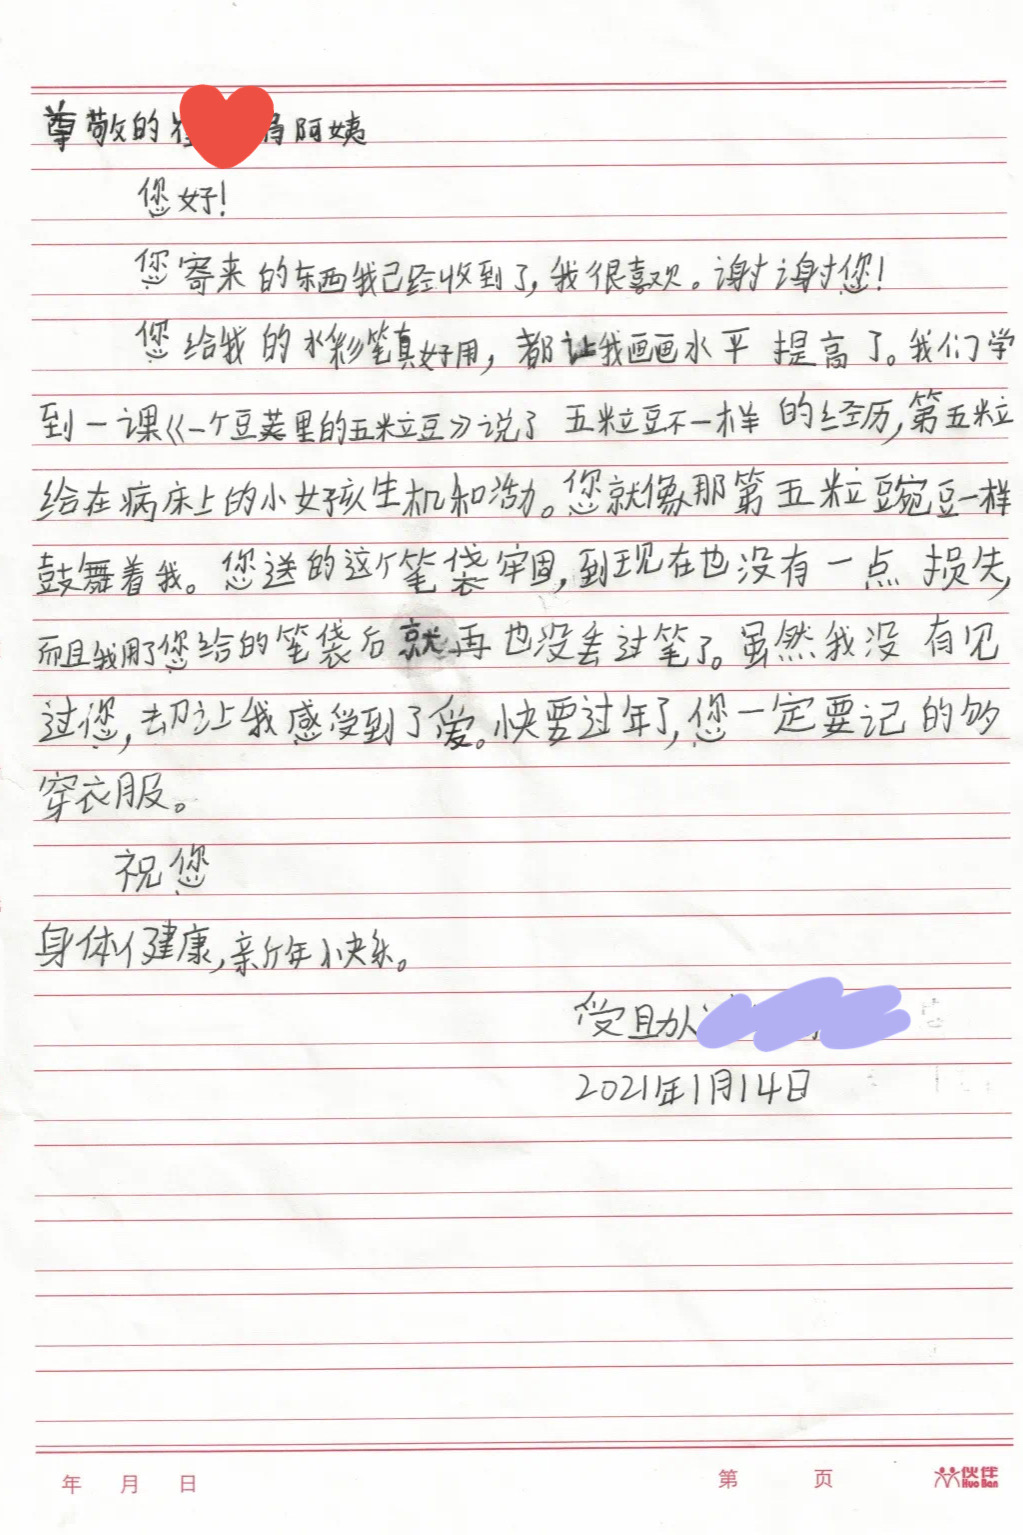 尊敬的 阿姨
您好!
您寄来的东西我已经收到了,我很喜欢。谢谢您!
您给我的水彩笔真好用,都让我画画水平提高了。我们学
到一课《一个豆荚里的五粒豆》说了五粒豆不一样的经历,第五粒
给在病床上的小女孩生机和活力。您就像那第五粒豌豆一样
鼓舞着我。您送的这个笔袋牢固,到现在也没有一点损失,
而且我用了您给的笔袋后就再也没丢过笔了。虽然我没有见
过您,却让我感受到了爱。快要过年了,您一定要记的多
穿衣服。
祝您
身体健康,新年快乐。
受助人
2021年1月14日
年 月 日 第 页 伙伴
HuoBan